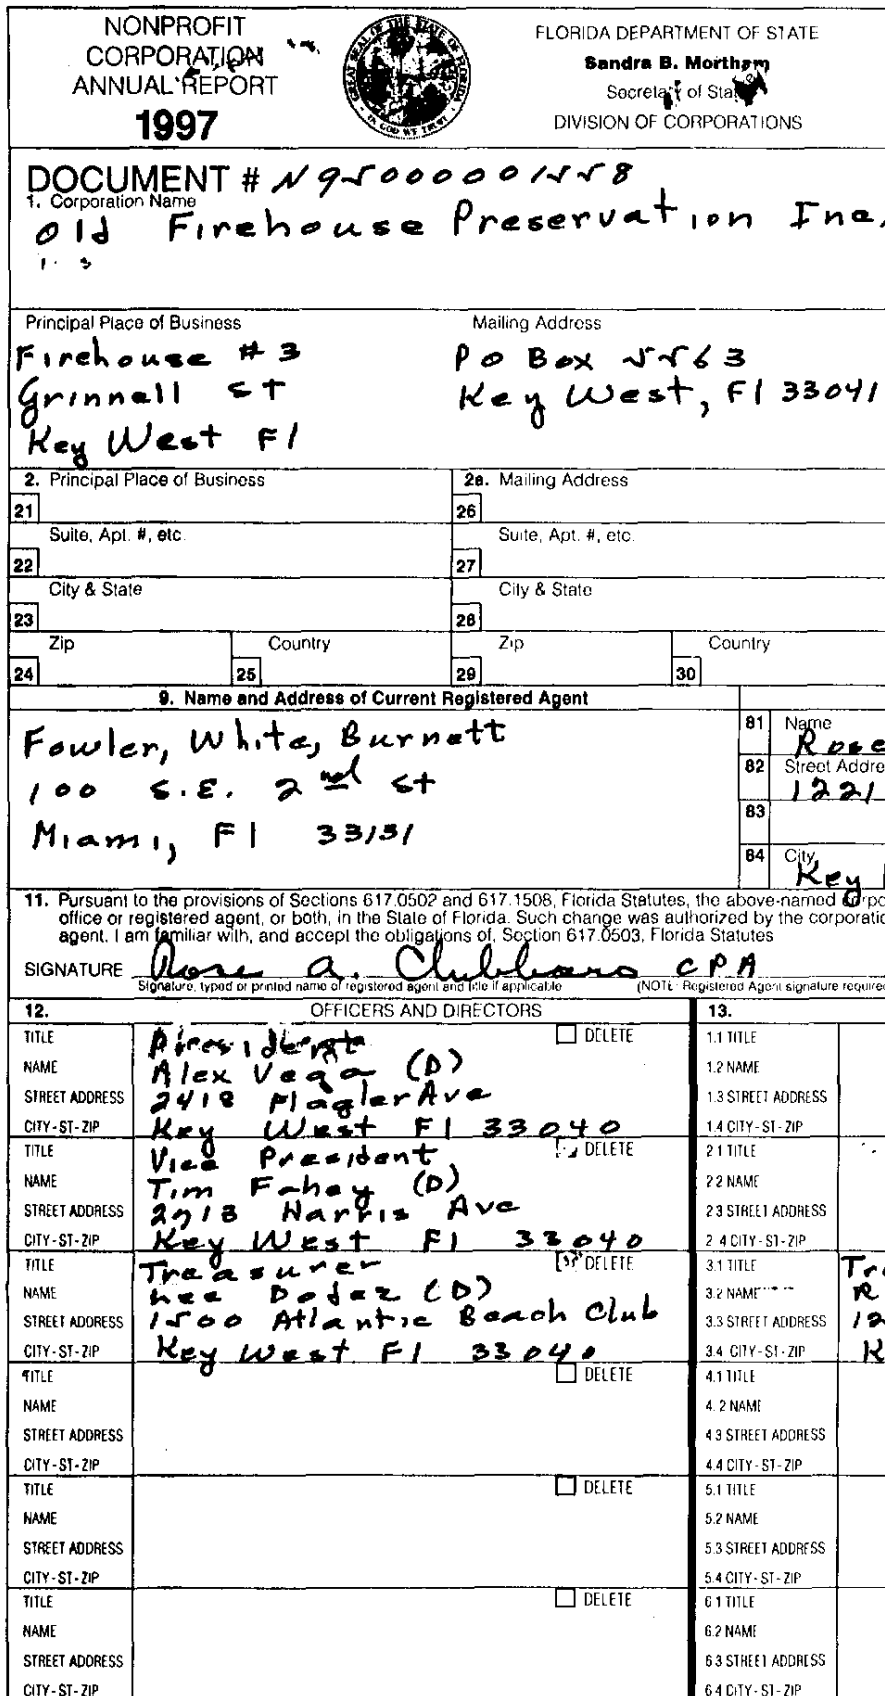 NONPROFIT
CORPORATION
ANNUAL REPORT
1997
FLORIDA DEPARTMENT OF STATE
Sandra B. Mortham
Secretary of State
DIVISION OF CORPORATIONS
DOCUMENT # N95000001558
1. Corporation Name
Old Firehouse Preservation Inc.
Principal Place of Business
Firehouse #3
Grinnell St
Key West Fl
Mailing Address
PO Box 5563
Key West, Fl 33041
2. Principal Place of Business
21
Suite, Apt. #, etc.
22
City & State
23
Zip
24
Country
25
2a. Mailing Address
26
Suite, Apt. #, etc.
27
City & State
28
Zip
29
Country
30
9. Name and Address of Current Registered Agent
Fowler, White, Burnett
100 S.E. 2nd St
Miami, Fl 33131
81 Name
Rose
82 Street Addre
1221
83
84 City
Key
11. Pursuant to the provisions of Sections 617.0502 and 617.1508, Florida Statutes, the above-named corpo
office or registered agent, or both, in the State of Florida. Such change was authorized by the corporatio
agent. I am familiar with, and accept the obligations of, Section 617.0503, Florida Statutes
SIGNATURE Rose A. CPA
Signature, typed or printed name of registered agent and title if applicable (NOTE: Registered Agent signature require
12. OFFICERS AND DIRECTORS 13.
TITLE President DELETE
NAME Alex Vega (D)
STREET ADDRESS 2418 Flagler Ave
CITY-ST-ZIP Key West Fl 33040
1.1 TITLE
1.2 NAME
1.3 STREET ADDRESS
1.4 CITY-ST-ZIP
TITLE Vice President DELETE
NAME Tim Fahey (D)
STREET ADDRESS Harris Ave
CITY-ST-ZIP Key West Fl 33040
2.1 TITLE
2.2 NAME
2.3 STREET ADDRESS
2.4 CITY-ST-ZIP
TITLE Treasurer DELETE
NAME Lee Dodez (D)
STREET ADDRESS 1500 Atlantic Beach Club
CITY-ST-ZIP Key West Fl 33040
3.1 TITLE Tre
3.2 NAME R
3.3 STREET ADDRESS 12
3.4 CITY-ST-ZIP K
TITLE DELETE
NAME
STREET ADDRESS
CITY-ST-ZIP
4.1 TITLE
4.2 NAME
4.3 STREET ADDRESS
4.4 CITY-ST-ZIP
TITLE DELETE
NAME
STREET ADDRESS
CITY-ST-ZIP
5.1 TITLE
5.2 NAME
5.3 STREET ADDRESS
5.4 CITY-ST-ZIP
TITLE DELETE
NAME
STREET ADDRESS
CITY-ST-ZIP
6.1 TITLE
6.2 NAME
6.3 STREET ADDRESS
6.4 CITY-ST-ZIP